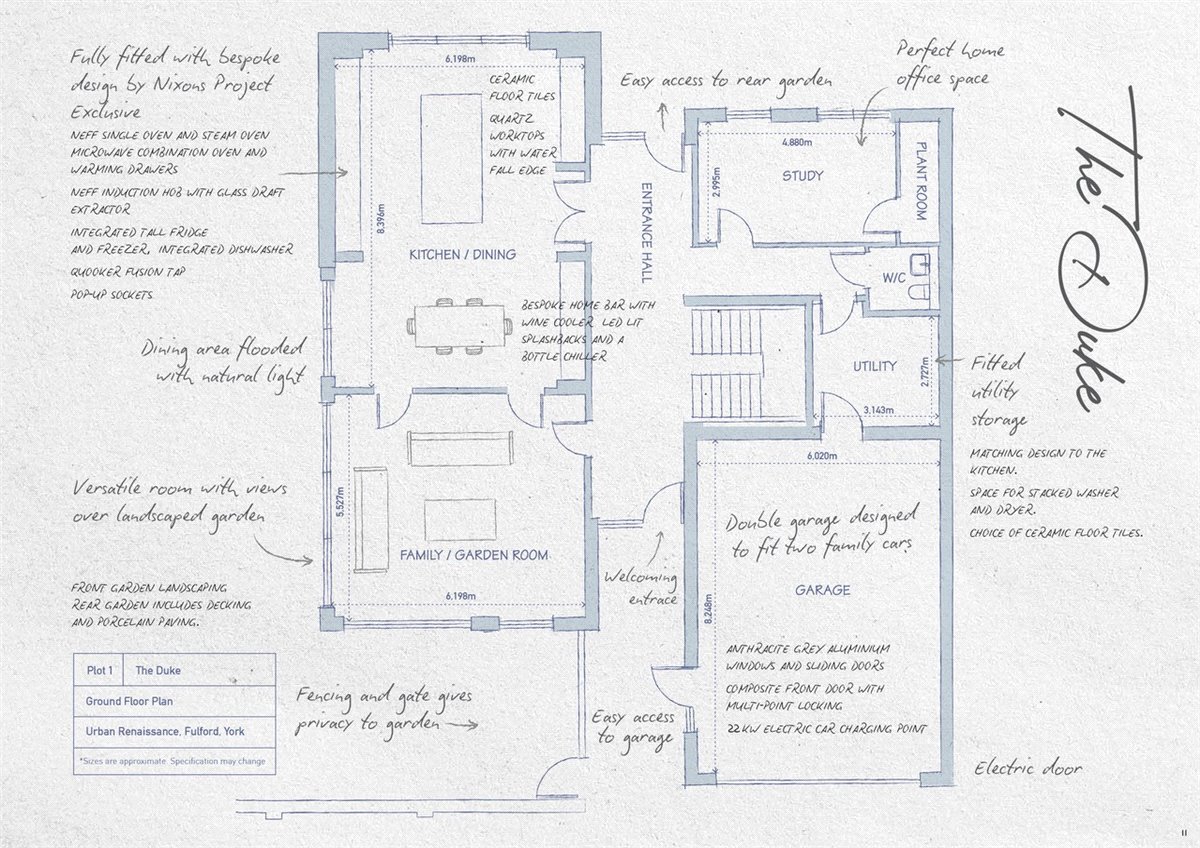 Fully fitted with bespoke
design by Nixons Project
Exclusive
NEFF SINGLE OVEN AND STEAM OVEN
MICROWAVE COMBINATION OVEN AND
WARMING DRAWERS
NEFF INDUCTION HOB WITH GLASS DRAFT
EXTRACTOR
INTEGRATED TALL FRIDGE
AND FREEZER, INTEGRATED DISHWASHER
QUOOKER FUSION TAP
POP-UP SOCKETS
Dining area flooded
with natural light
Versatile room with views
over landscaped garden
FRONT GARDEN LANDSCAPING
REAR GARDEN INCLUDES DECKING
AND PORCELAIN PAVING.
Plot 1 The Duke
Ground Floor Plan
Urban Renaissance, Fulford, York
*Sizes are approximate. Specification may change
6.198m
CERAMIC
FLOOR TILES
QUARTZ
WORKTOPS
WITH WATER
FALL EDGE
8.396m
KITCHEN / DINING
BESPOKE HOME BAR WITH
WINE COOLER LED LIT
SPLASHBACKS AND A
BOTTLE CHILLER
5.527m
FAMILY / GARDEN ROOM
6.198m
Fencing and gate gives
privacy to garden
Easy access to rear garden
ENTRANCE HALL
Welcoming
entrace
Easy access
to garage
Perfect home
office space
4.880m
2.995m
STUDY
PLANT ROOM
W/C
UTILITY
2.727m
3.143m
Fitted
utility
storage
MATCHING DESIGN TO THE
KITCHEN.
SPACE FOR STACKED WASHER
AND DRYER.
CHOICE OF CERAMIC FLOOR TILES.
6.020m
Double garage designed
to fit two family cars
GARAGE
8.248m
ANTHRACITE GREY ALUMINIUM
WINDOWS AND SLIDING DOORS
COMPOSITE FRONT DOOR WITH
MULTI-POINT LOCKING
22KW ELECTRIC CAR CHARGING POINT
Electric door
The Duke
11